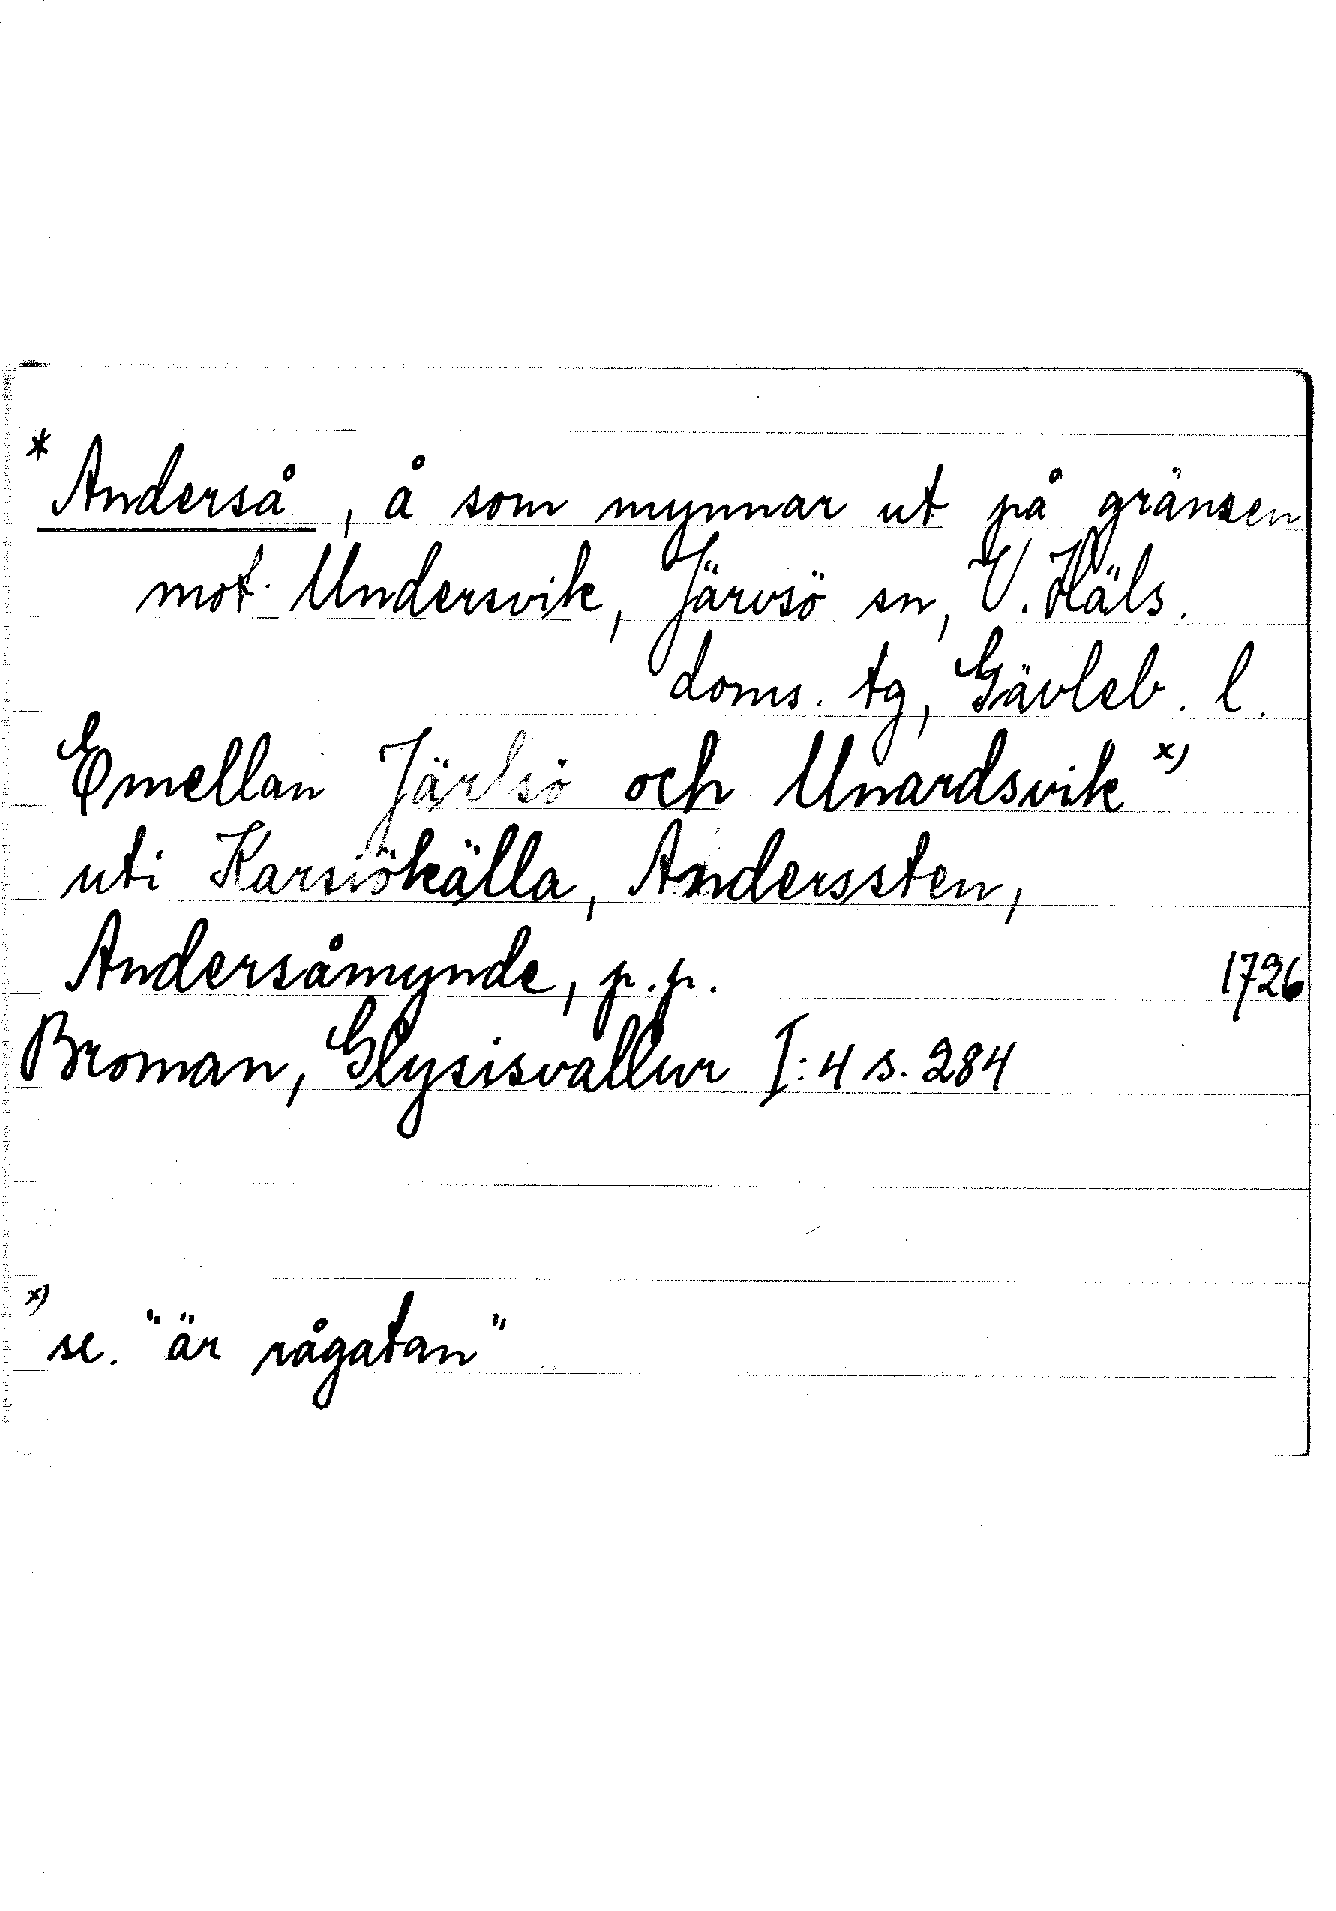 * Anderså, å som mynnar ut på gränsen
mot Undersvik, Järvsö sn, V. Häls.
doms. tg, Gävleb. l.
Emellan Järlsö och Unardsvik x)
uti Karsiökälla, Anderssten,
Andersåmynde, p.p. 1726
Broman, Glysisvallur I:4 s. 284
x) sc. "är rågatan"